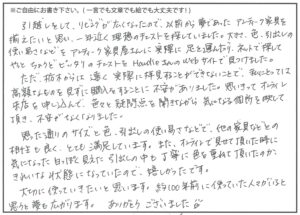 ※ご自由にお書き下さい。(一言でも文章でも絵でも大丈夫です)
引越しをして、リビングが広くなったので、以前から夢であった アンティーク家具を
揃えたいと思い、一年近く 理想のチェストを探していました。大きさ、色、引出しの
使い易さなどを アンティーク家具屋さんに実際に足を運んだり、ネットで探して
やっと ちょうどピッタリのチェストを Handleさんのwebサイトで見つけました。
ただ、栃木からは遠く 実際に拝見することができないことで、私にとっては
高額なものを見ずに購入することに不安がありました。思いきって オンライン
来店を申し込んで、色々と疑問点を聞きながら 気になる箇所を映して
頂き、不安がなくなりました。
思った通りのサイズと色、引出しの使い易さなどで、他の家具などとの
相性も良く、とても満足しています。また、オンラインで見せて頂いた時に
気になった 引出しの中も丁寧に色を重ねて頂いたのか、
きれいな状態になっていたので、嬉しかったです。
大切に使っていきたいと思います。約100年前に使っていた人々がいると
思うと夢も広がります。 ありがとうございました